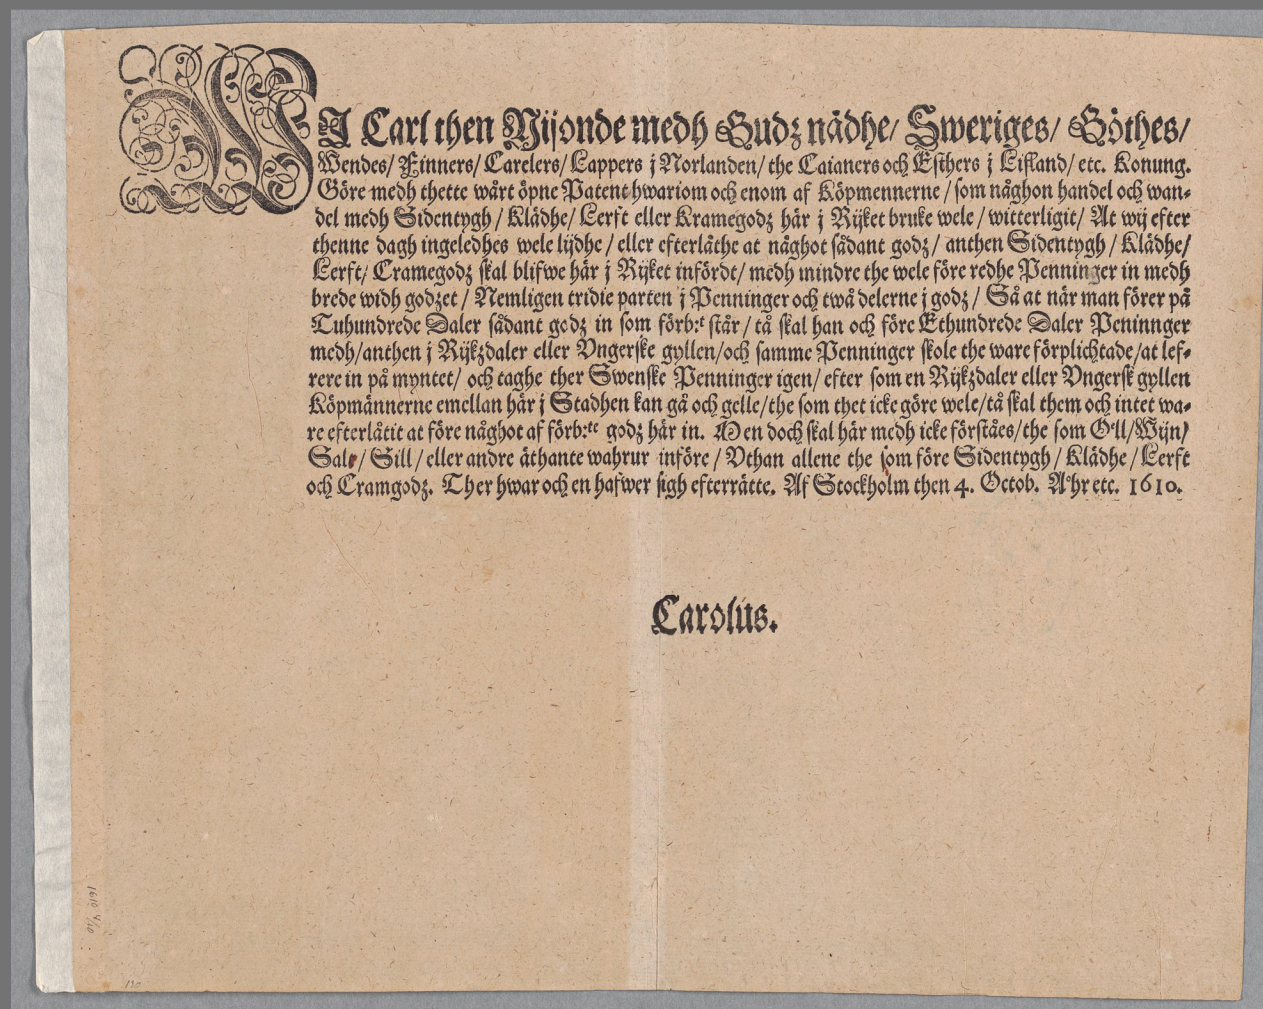 WJ Carl then Nijonde medh Gudz nådhe/ Sweriges/ Göthes/
Wendes/ Finners/ Carelers/ Lappers j Norlanden/ the Caianers och Esthers j Lifland/ etc. Konung.
Göre medh thette wårt öpne Patent hwariom och enom af Köpmennerne/ som någhon handel och wan-
del medh Sidentygh/ Klädhe/ Lerft eller Kramegodz här j Rijket bruke wele/ witterligit/ At wij efter
thenne dagh ingeledhes wele lijdhe/ eller efterlåthe at någhot sådant godz/ anthen Sidentygh/ Klädhe/
Lerft/ Cramegodz skal blifwe här j Rijket infördt/ medh mindre the wele före redhe Penninger in medh
brede widh godzet/ Nemligen tridie parten j Penninger och twå delerne j godz/ Så at när man förer på
Tuhundrede Daler sådant godz in som förb:t står/ tå skal han och före Ethundrede Daler Peninnger
medh/anthen j Rijkzdaler eller Vngerske gyllen/och samme Penninger skole the ware förplichtade/at lef-
rere in på myntet/ och taghe ther Swenske Penninger igen/ efter som en Rijkzdaler eller Vngersk gyllen
Köpmännerne emellan här j Stadhen kan gå och gelle/the som thet icke göre wele/tå skal them och intet wa-
re efterlåtit at före någhot af förb:te godz här in. Men doch skal här medh icke förståes/the som Oell/Wijn/
Salt/ Sill/ eller andre äthante wahrur införe/ Vthan allene the som före Sidentygh/ Klädhe/ Lerft
och Cramgodz. Ther hwar och en hafwer sigh efterrätte. Af Stockholm then 4. Octob. Åhr etc. 1610.
Carolus.
1610 4/10
130